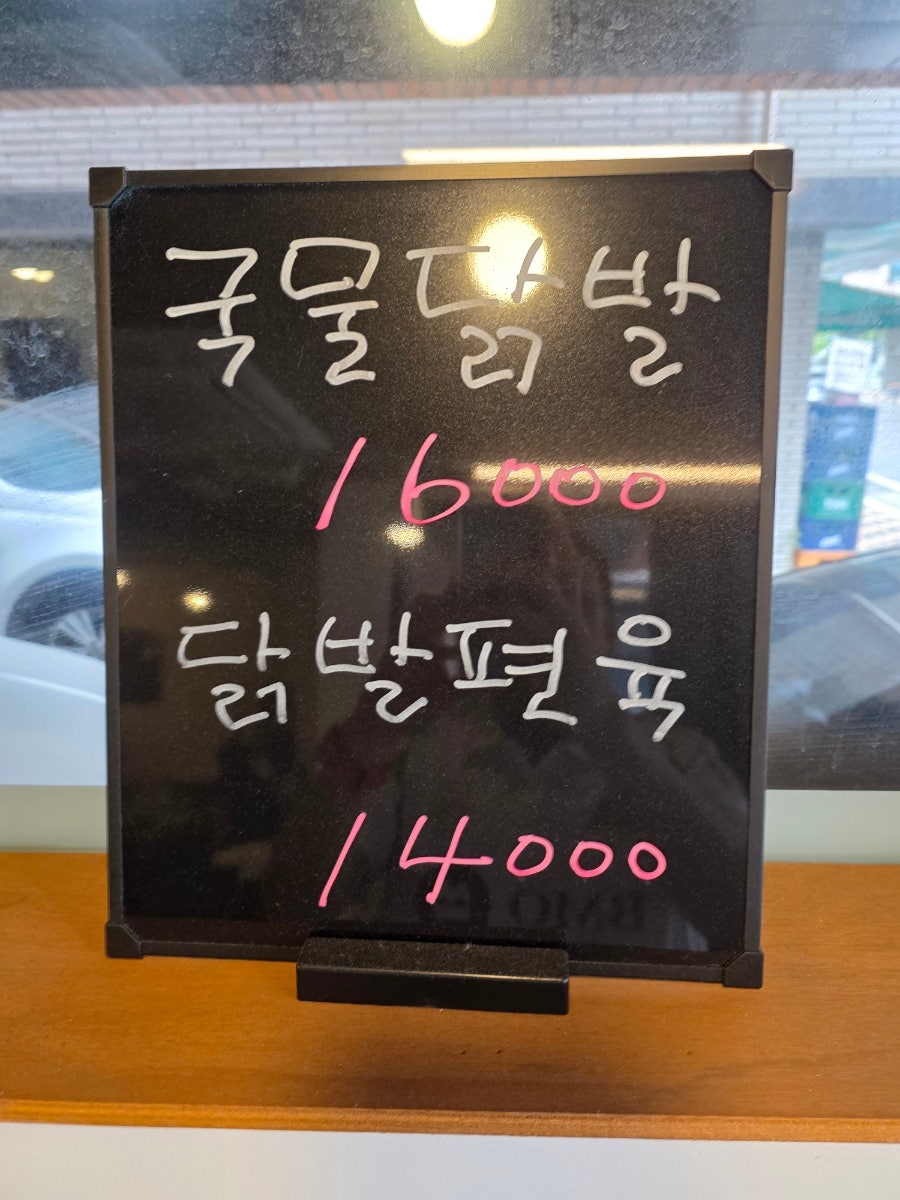 국물닭발
16000
닭발편육
14000